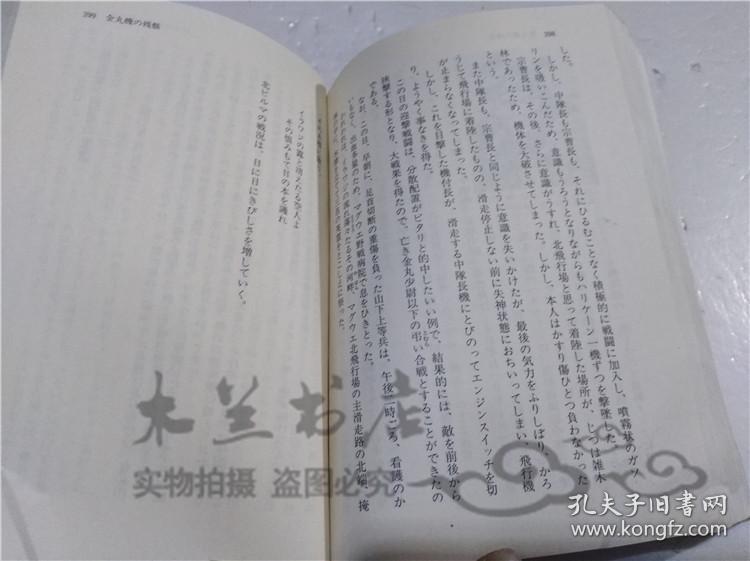 298
した。
しかし、中隊長も宗曹長も、それにひるむことなく積極的に戦闘に加入し、噴霧状のガソ
リンを吸いこんだため、意識もうろうとなりながらもハリケーン一機ずつを撃墜した。
しかし、その後、さらに意識がうすれ、北飛行場と思って着陸した場所が、じつは雑木
林であったため、機体を大破させてしまった。しかし、本人はかすり傷ひとつ負わなかった
という。
また中隊長も、宗曹長と同じように意識を失いかけたが、最後の気力をふりしぼり、かろ
うじて飛行場に着陸したものの、滑走停止しない前に失神状態におちいってしまい、飛行機
が止まらなくなってしまった。
しかし、これを目撃した機付長が、滑走する中隊長機にとびのってエンジンスイッチを切
り、ようやく事なきを得た。
この日の迎撃戦闘は、分散配置がピタリと的中したいい例で、結果的には、敵を前後から
挟撃する形となり、大戦果を得たので、亡き金丸少尉以下の弔い合戦とすることができたの
である。
なお、この日、早朝に、足首切断の重傷を負った山下上等兵は、午後二時ごろ、看護のか
いもなく、出血多量のため、マグウエ野戦病院で息をひきとった。
われわれは、イラワジの流れ滔々たるその河畔、マグウエ北飛行場の主滑走路の北端、掩
299 金丸機の残骸
イラワジの露と消えたる空人よ
その恨みもて日の本を護れ
北ビルマの戦況は、日に日にきびしさを増していく。
木兰书店
实物拍摄 盗图必究
孔夫子旧书网
www.kongfz.com